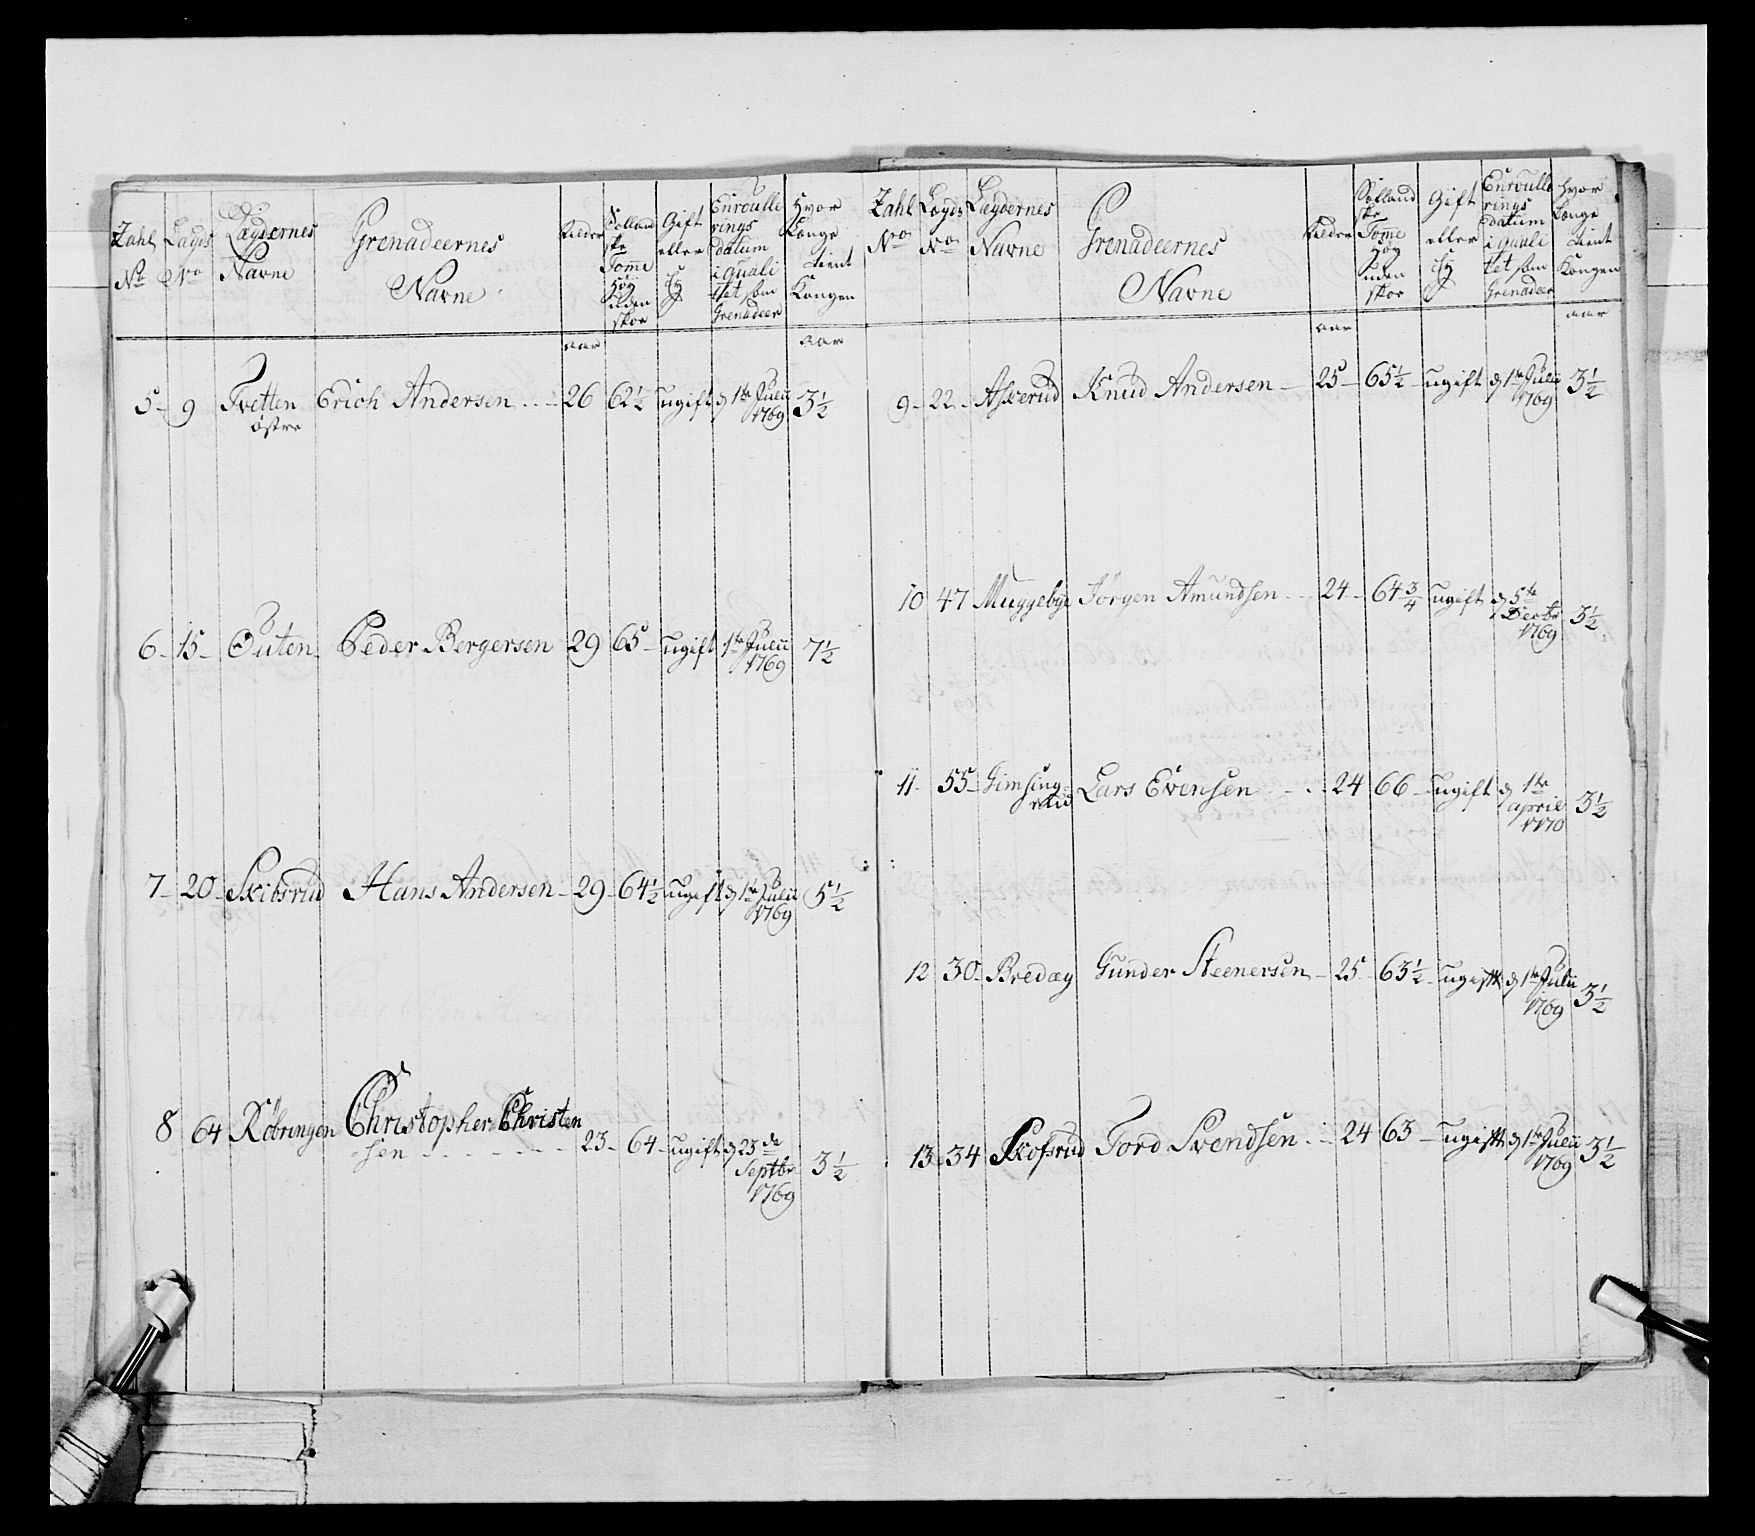 Zahl No Lægds No Lægdernes Navne Grenadeernes Navne Alder Sællandske Tomme Høg uden skoe Gift eller Ey Enroullerings datum i qualitet som Grenadeer Hvor Længe tient Kongen
aar aar
5 9 Tvetten Erich Andersen 26 62½ ugift d 1te Julii 1769 3½
østre
6 15 Outen Peder Bergersen 29 65 ugift 1te Julii 1769 7½
7 20 Skibsrud Hans Andersen 29 64½ ugift d 1te Julii 1769 5½
8 64 Røbringen Christopher Christen
sen 23 64 ugift d 23de Septbr 1769 3½
Zahl No Lægds No Lægdernes Navne Grenadeernes Navne Alder Sællandske Tome Høg uden skoe Gift eller Ey Enroullerings datum i qualitet som Grenadeer Hvor Længe tient Kongen
aar aar
9 22 Askerud Knud Andersen 25 65½ ugift d 1te Julii 1769 3½
10 47 Muggebye Jörgen Amundsen 24 64¾ ugift d 5te Decbr 1769 3½
11 55 Gimsing
rud Lars Evensen 24 66 ugift d 1te april 1770 3½
12 30 Bredæg Gunder Steenersen 25 63½ ugift d 1te Julii 1769 3½
13 34 Skofsrud Tord Svendsen 24 63 ugift d 1te Julii 1769 3½